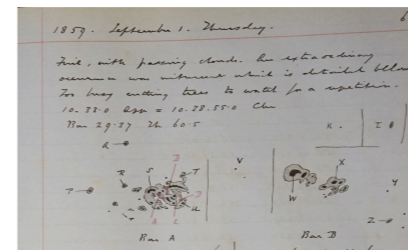 1859. September 1. Thursday. 6
Fine, with passing clouds. An extraordinary
occurrence was witnessed which is detailed below
Too busy cutting trees to watch for a repetition.
10. 33. 0 App = 10. 28. 55.0 Chr
Bar 29.37 Th 60.5
K I
Q
B
V X
R S T
P D Y
U W
A C Z
Bar A Bar B